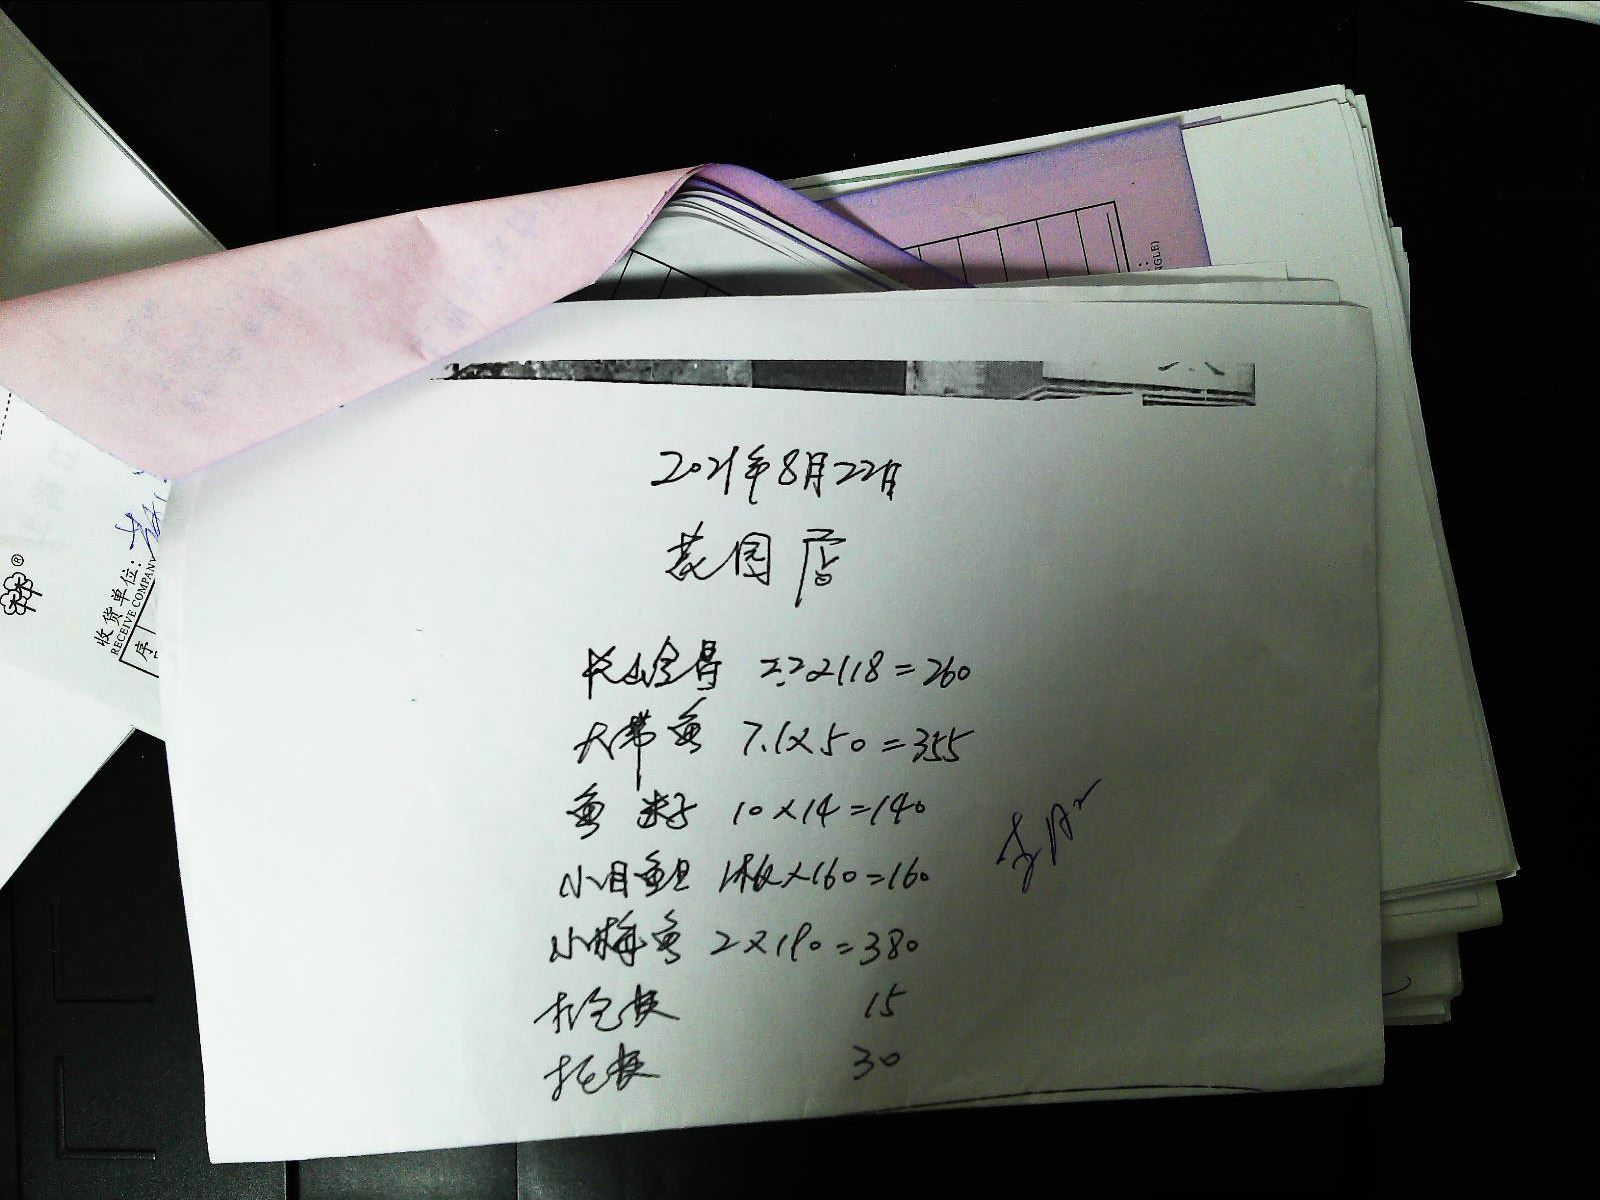 2021年8月22日
花园店
大带鱼 7.1×50=355
鱼籽 10×14=140
小目鱼旦 1板×160=160
小梅鱼 2×190=380
打包费 15
托费 30
收货单位:
RECEIVE COMPANY
序